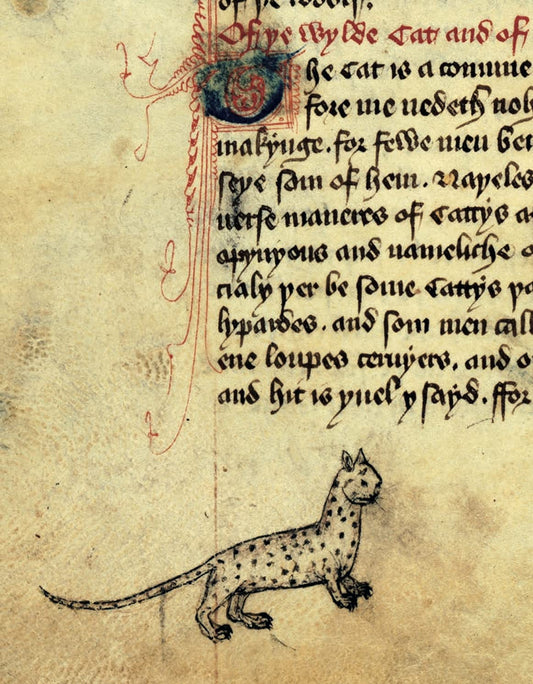 of ye wolf.
Of ye wylde Cat and of
The Cat is a comune
fore me nedeth noȝ
makynge. for fewe men bet
seye som of hem. Nayeles
uerse maneres of Cattys a
opynyons and nameliche o
cialy yer be some Cattys ya
lypardes. and som men call
ene loupes ceruyers. and o
and hit is yuel y sayd. ffor